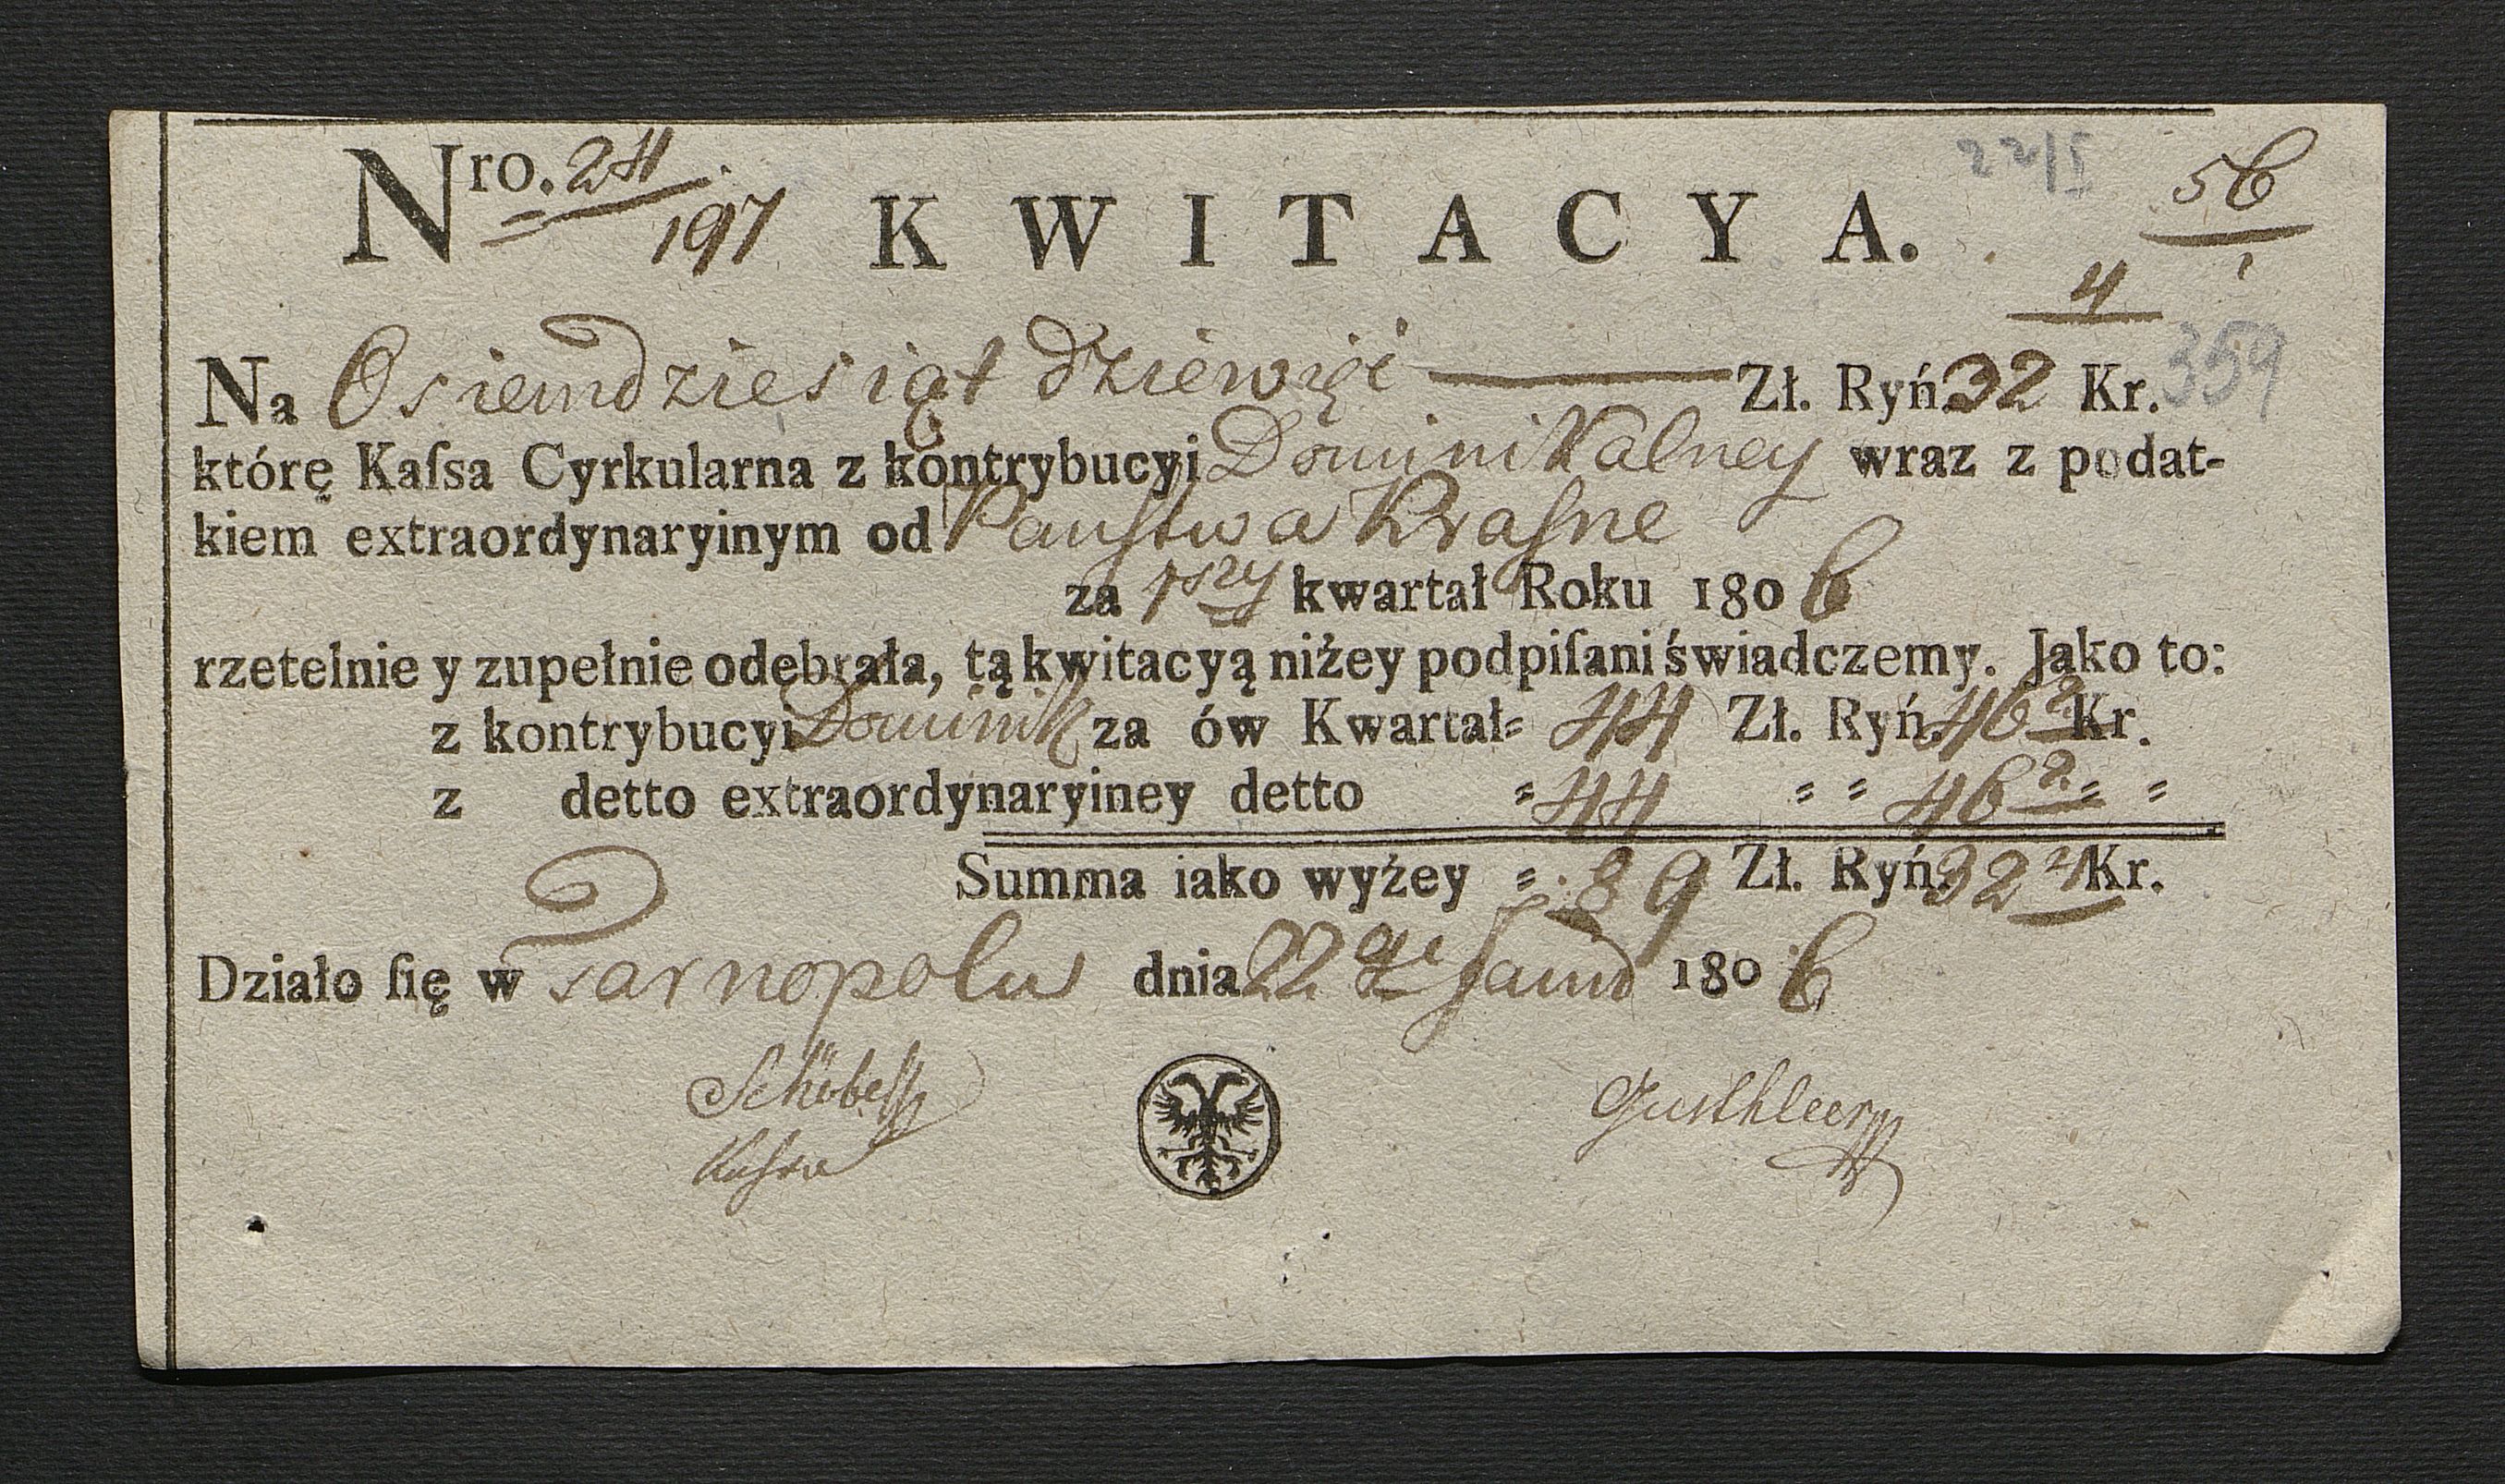 Nro. 24/197 KWITACYA. 22/I 56/1
4
Na Osiemdziesiąt dziewięć Zł. Ryń. 32 Kr. 359
którę Kaſsa Cyrkularna z kontrybucyi Dominikalney wraz z podat-
kiem extraordynaryinym od Pańſtwa Kraſne
za 1szy kwartał Roku 1806
rzetelnie y zupełnie odebrała, tą kwitacyą niżey podpiſani świadczemy. Jako to:
z kontrybucyi Dominik za ów Kwartał 44 Zł. Ryń. 46 2 Kr.
z detto extraordynaryiney detto 44 " " 46 2 " "
Summa iako wyżey 89 Zł. Ryń. 32 4 Kr.
Działo ſię w Tarnopolu dnia 22 1806
Schöbel